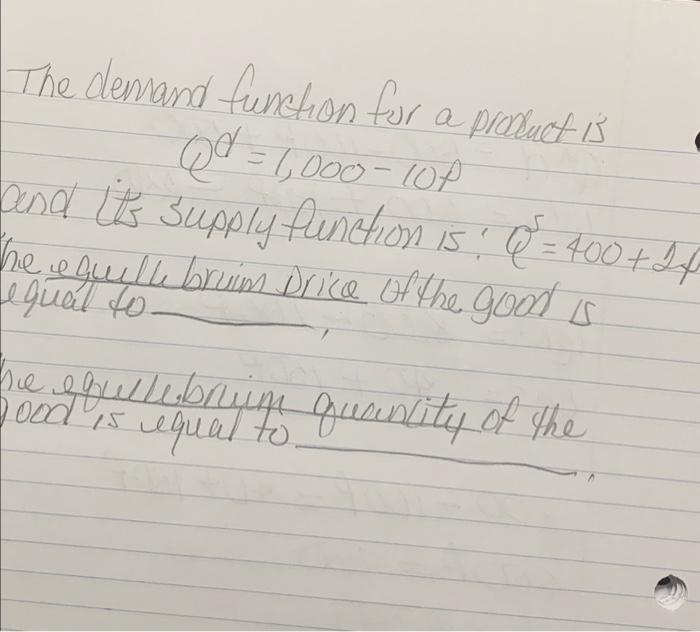 The demand function for a product is
Q^d = 1,000 - 10P
and its supply function is: Q^s = 400 + 2P
he equillebruim price of the good is
equal to ________,
he equillebruim quantity of the
good is equal to ____________.